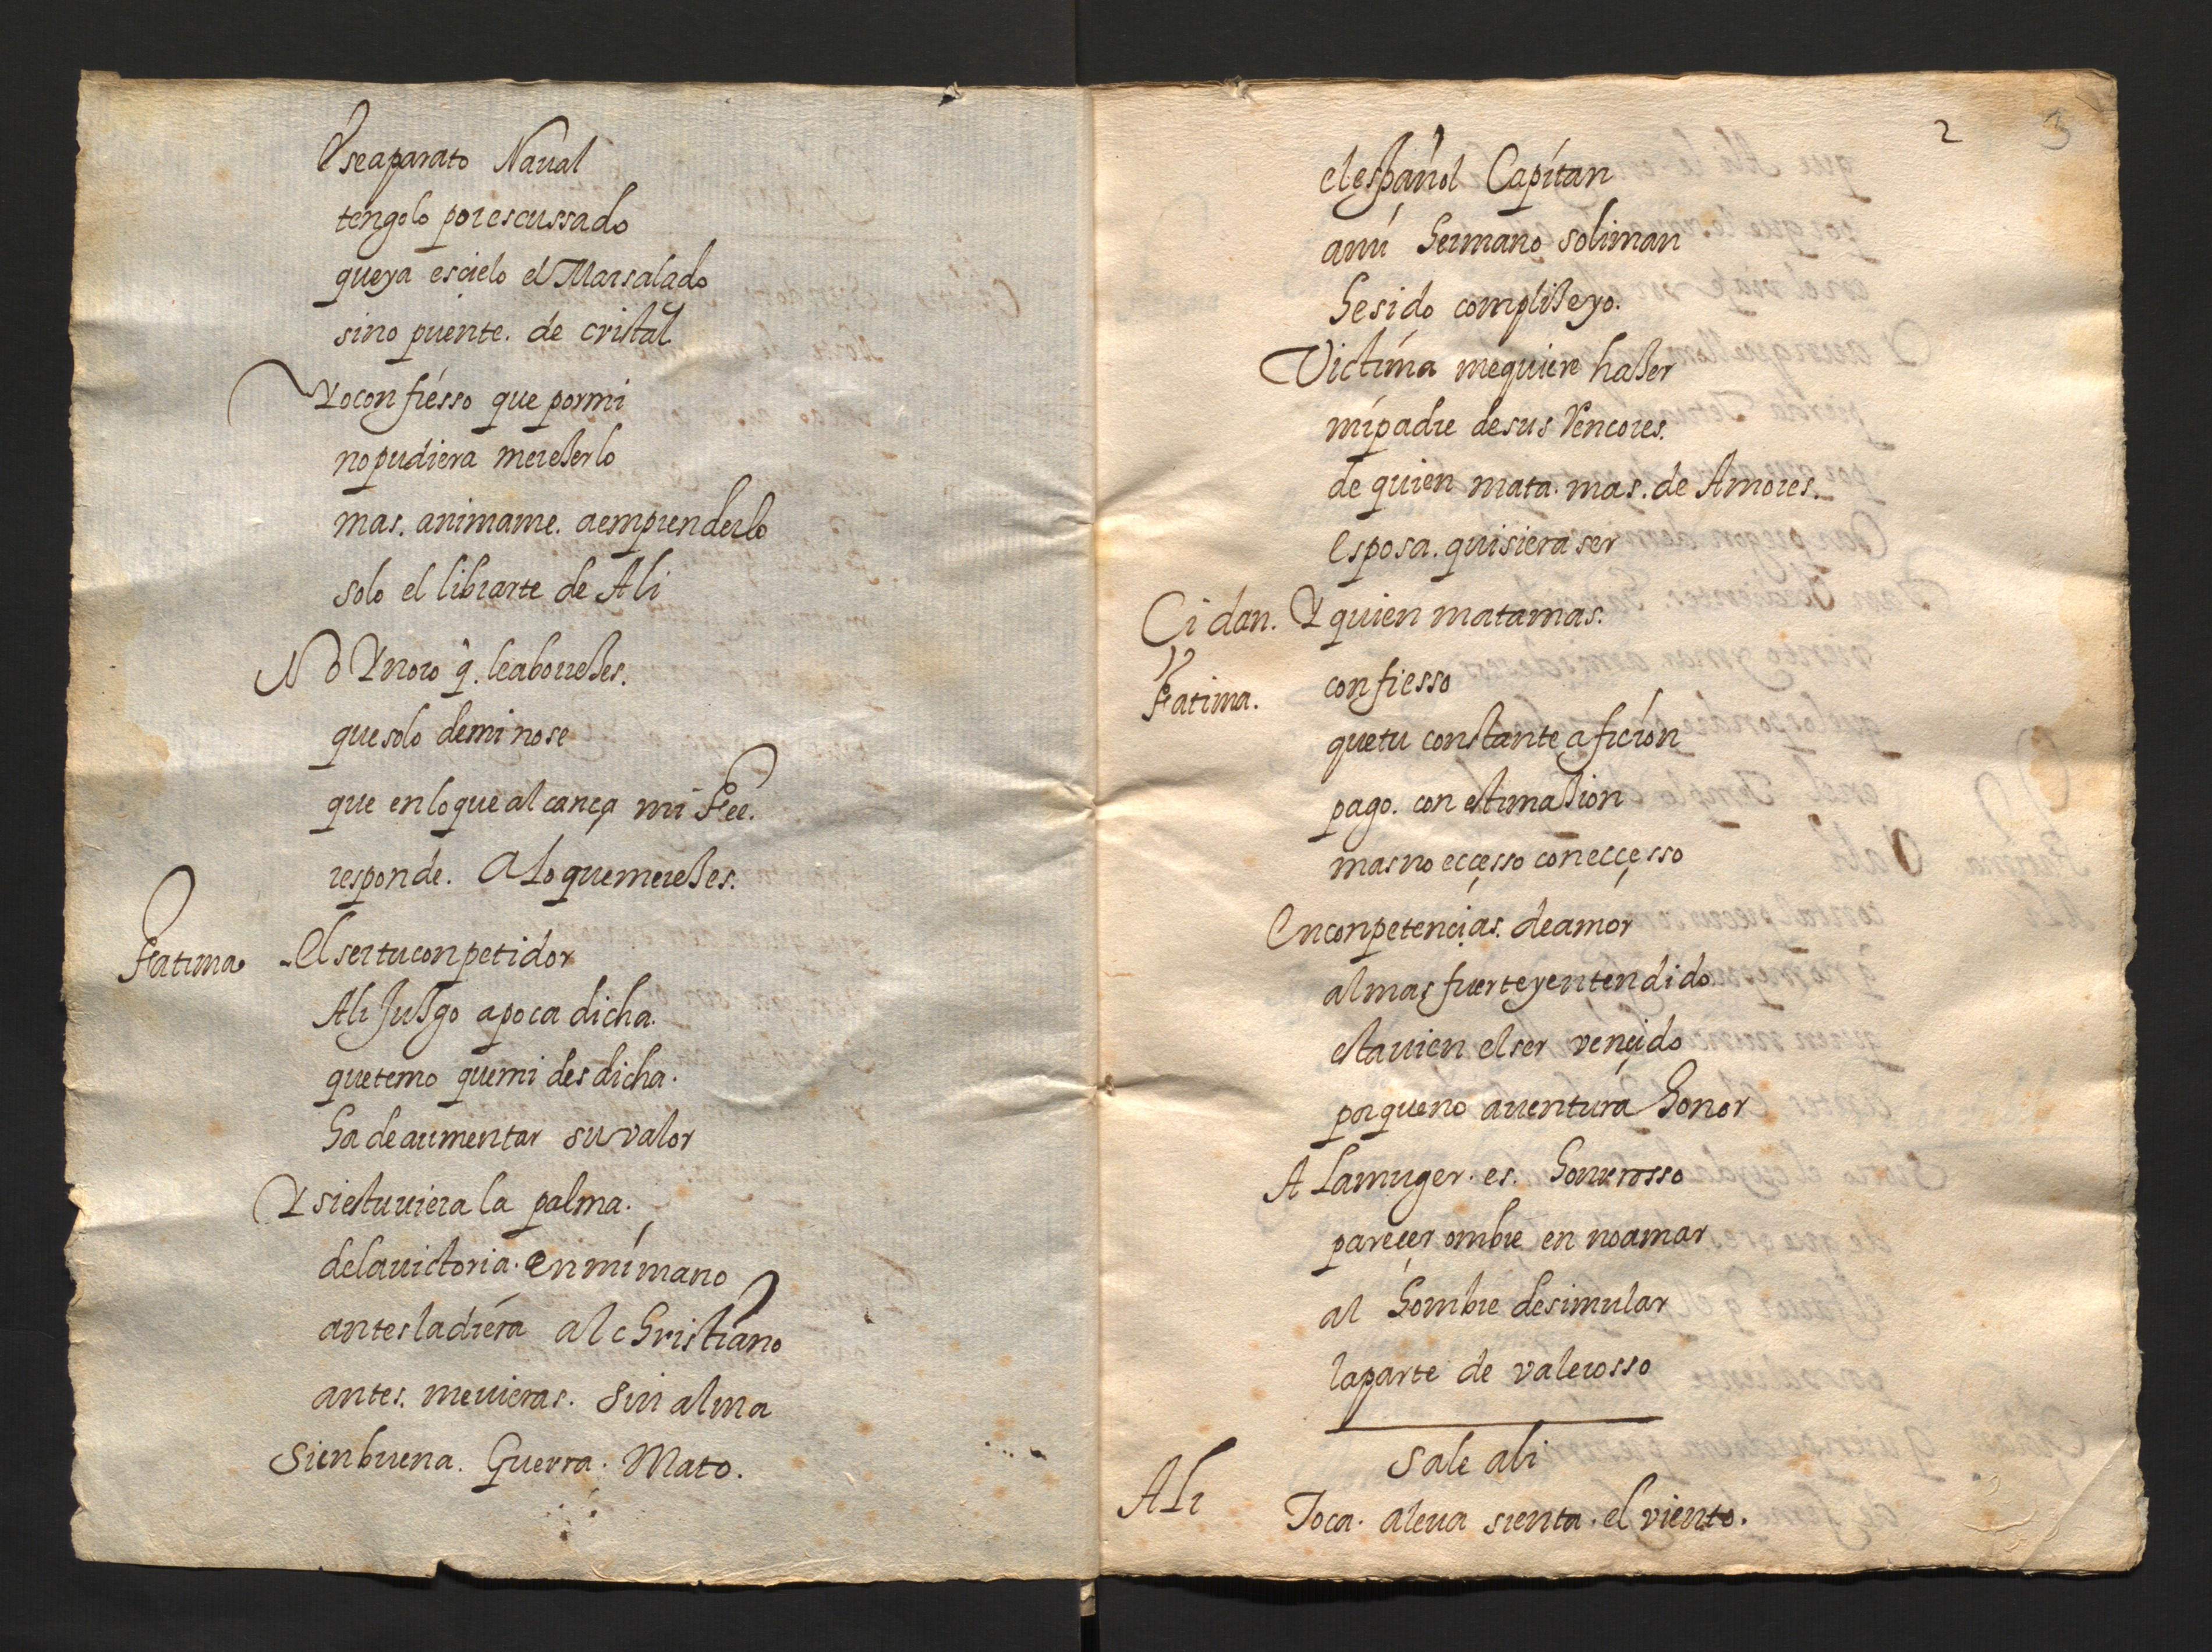 Ese aparato Naual
tengolo por escussado
que ya es cielo el Mar salado
sino puente. de cristal
Yo confiesso que por mi
no pudiera mereserlo
mas. animame. a emprenderlo
solo el librarte de Ali
No Ynoro q̃. le aborreses.
que solo de mi no se
que en lo que alcança mi Fee.
responde. A Lo que mereses.
Fatima. El ser tu conpetidor
Ali Jusgo a poca dicha.
que temo que mi desdicha.
ha de aumentar su valor
Y si estuuiera la palma.
de la uictoria. en mi mano
antes la diera al christiano
antes. me uieras. sin alma
Si en buena. Guerra. Mato.
2 3
el español Capitan
a mi hermano soliman
he sido complise yo.
Victima me quiere haser
mi padre de sus Rencores.
de quien mata. mas. de Amores.
esposa. quisiera ser
Cidan. Y quien mata mas.
Fatima. confiesso
que tu constante aficion
pago. con estimasion
mas no ecçesso con ecçesso
En conpetençias. de amor
al mas fuerte y entendido
esta uien el ser vençido
por que no auentura honor
A La muger. es. honrrosso
pareçer ombre en no amar
al hombre desimular
la parte de valerosso
sale ali
Ali Toca. a leua sienta. el viento.